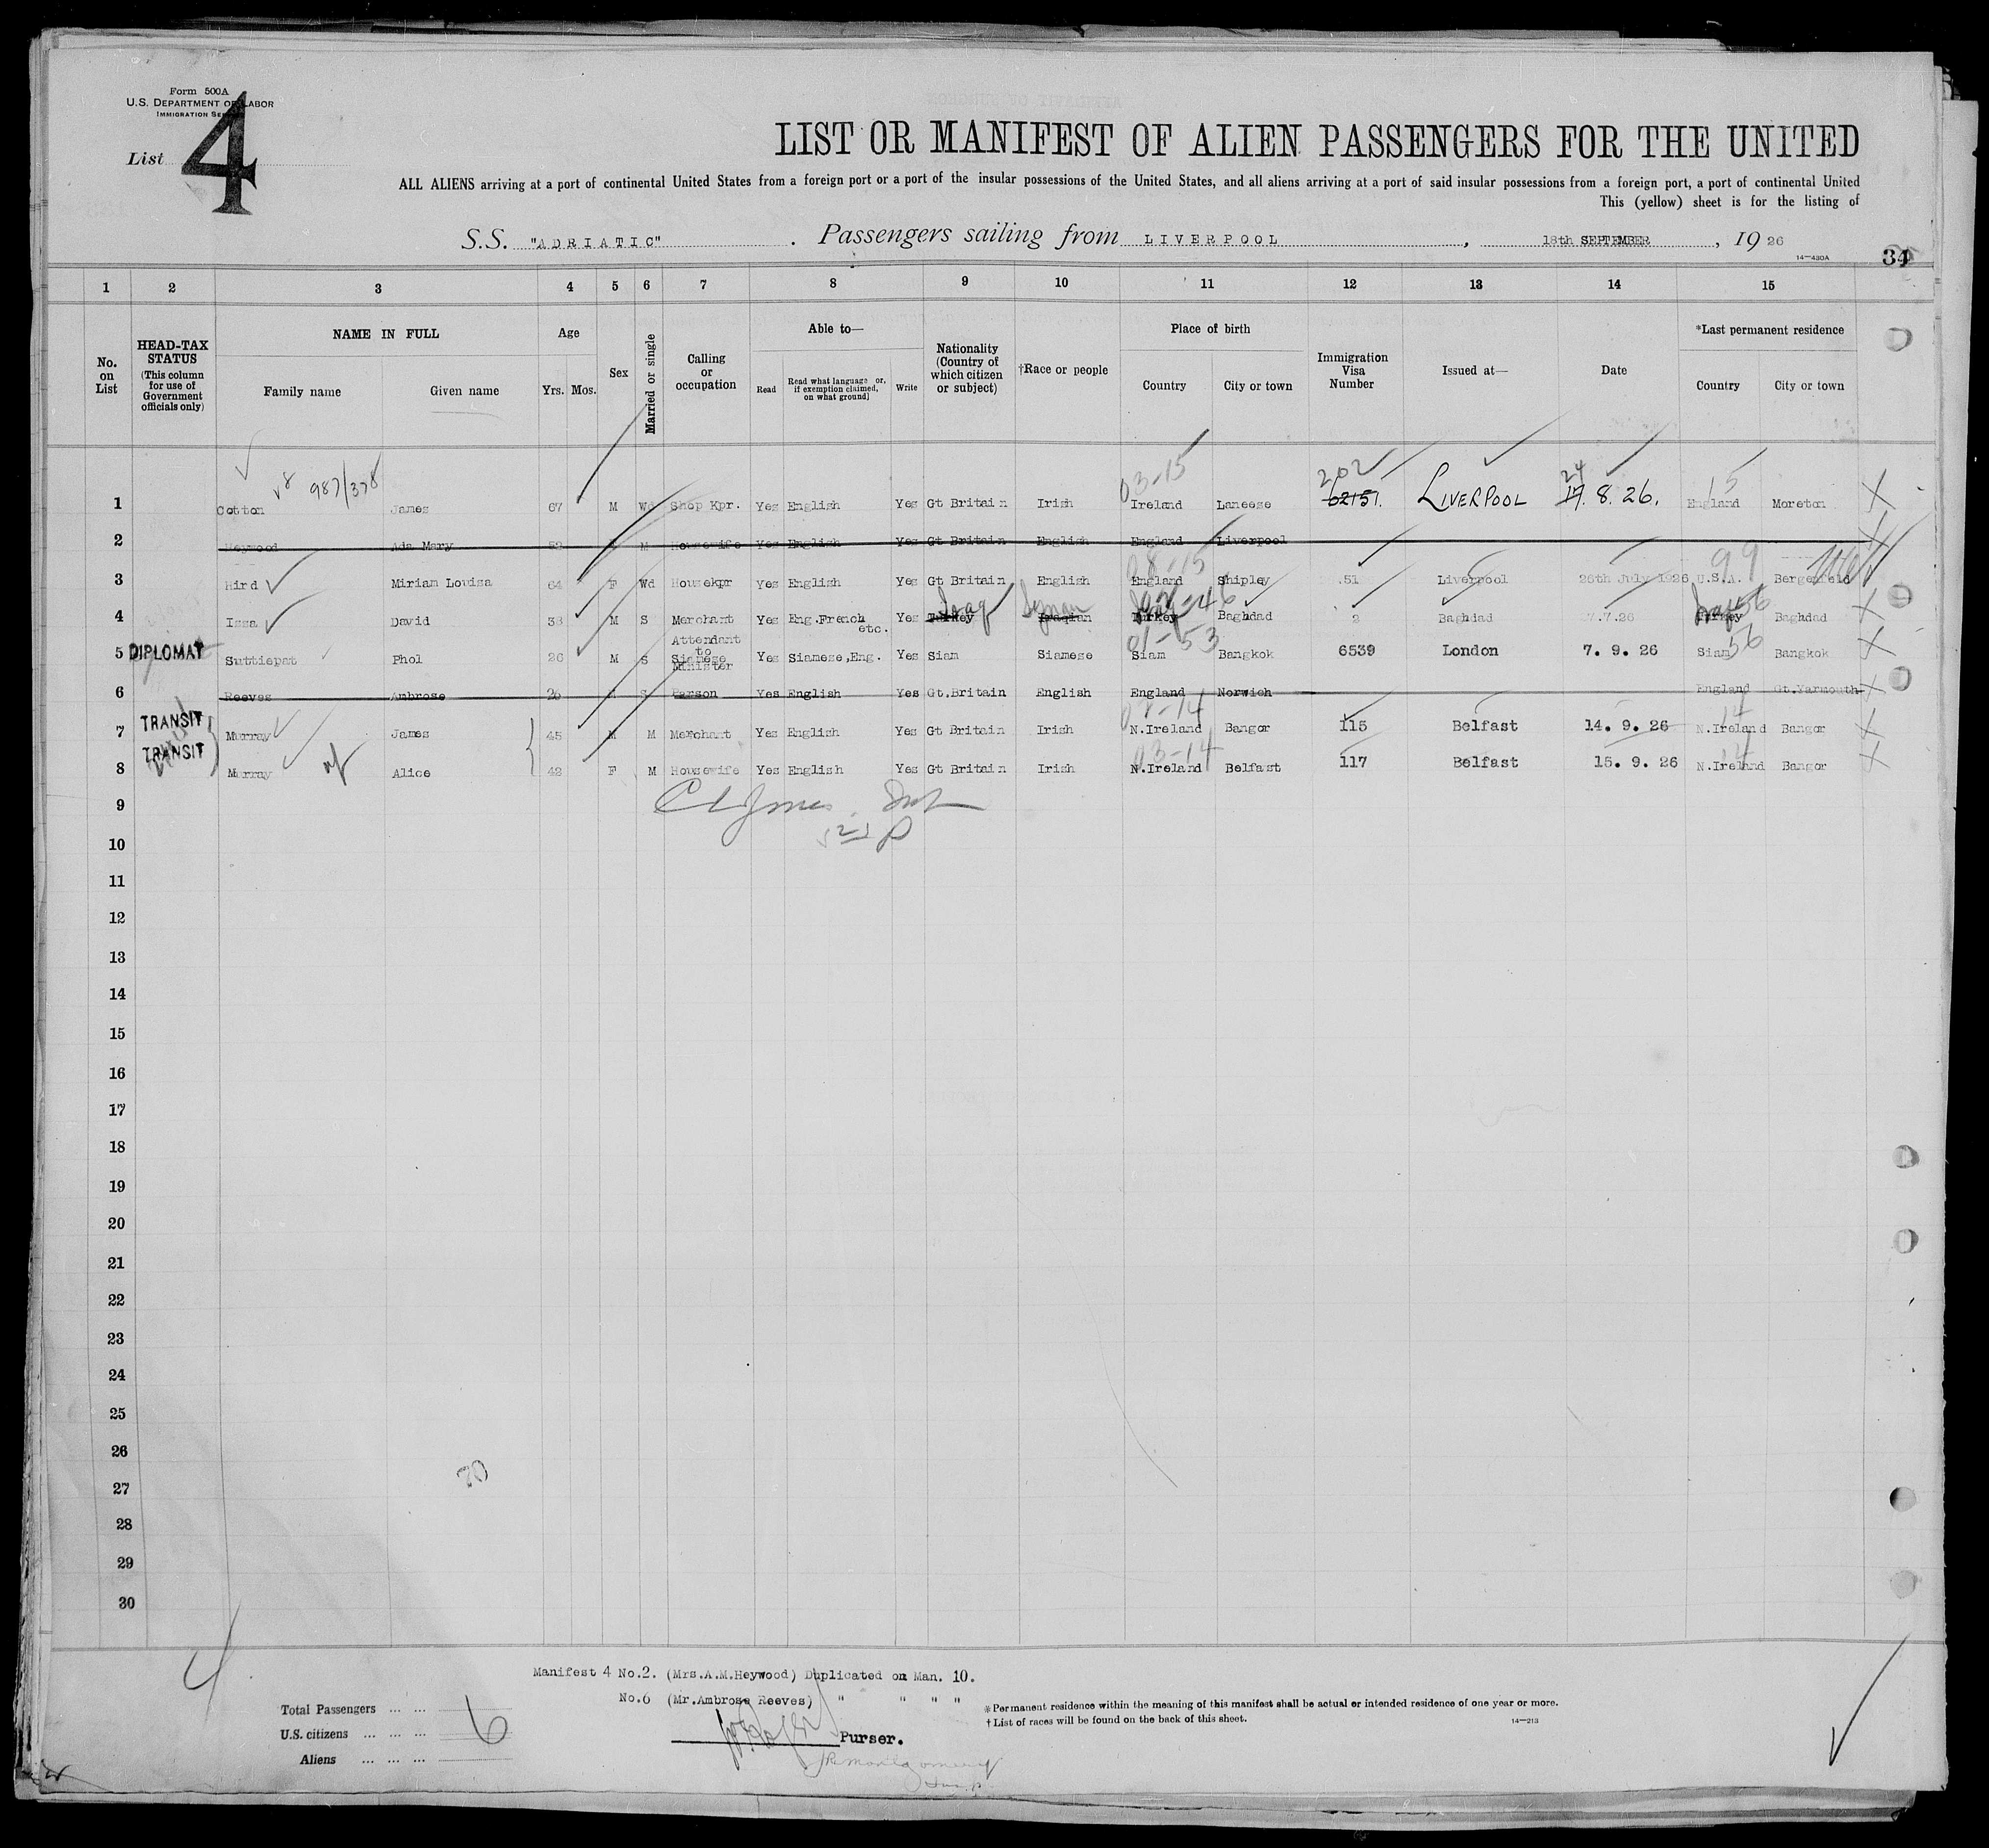 Form 500A
U.S. DEPARTMENT OF LABOR
IMMIGRATION SER
List 4
LIST OR MANIFEST OF ALIEN PASSENGERS FOR THE UNITED
ALL ALIENS arriving at a port of continental United States from a foreign port or a port of the insular possessions of the United States, and all aliens arriving at a port of said insular possessions from a foreign port, a port of continental United
This (yellow) sheet is for the listing of
S.S. "ADRIATIC" . Passengers sailing from LIVERPOOL , 18th SEPTEMBER , 19 26
14—430A
34
1 2 3 4 5 6 7 8 9 10 11 12 13 14 15
No. on List
HEAD-TAX STATUS (This column for use of Government officials only)
NAME IN FULL
Family name Given name
Age
Yrs. Mos.
Sex
Married or single
Calling or occupation
Able to—
Read
Read what language or, if exemption claimed, on what ground]
Write
Nationality (Country of which citizen or subject)
†Race or people
Place of birth
Country City or town
Immigration Visa Number
Issued at—
Date
*Last permanent residence
Country City or town
v8 987/378 03-15 202 24 15
1 Cotton James 67 M Wd Shop Kpr. Yes English Yes Gt Britain Irish Ireland Laneese 62151. LIVERPOOL 17. 8. 26. England Moreton X
2 Heywood Ada Mary 52 M Housewife Yes English Yes Gt Britain English England Liverpool
08-15 99
3 Hird Miriam Louisa 64 F Wd Housekpr Yes English Yes Gt Britain English England Shipley 51 Liverpool 26th July 1926 U.S.A. Bergenfield
Iraq Syrian Iraq 46 Iraq 56
4 Issa David 38 M S Merchant Yes Eng.French etc. Yes Turkey Iraqian Turkey Baghdad 2 Baghdad 7.26 Turkey Baghdad X
01-53 56
5 DIPLOMAT Suttiepat Phol 26 M S Attendant to Siamese Minister Yes Siamese,Eng. Yes Siam Siamese Siam Bangkok 6539 London 7. 9. 26 Siam Bangkok X
6 Reeves Ambrose 26 M S Parson Yes English Yes Gt.Britain English England Norwich England Gt.Yarmouth X
14 14
7 TRANSIT Murray James 45 M M Merchant Yes English Yes Gt Britain Irish N.Ireland Bangor 115 Belfast 14. 9. 26 N.Ireland Bangor X
03-14 14
8 TRANSIT Murray Alice 42 F M Housewife Yes English Yes Gt Britain Irish N.Ireland Belfast 117 Belfast 15. 9. 26 N.Ireland Bangor X
9
10
11
12
13
14
15
16
17
18
19
20
21
22
23
24
25
26
27
28
29
30
20
Manifest 4 No.2. (Mrs.A.M.Heywood) Duplicated on Man. 10.
No.6 (Mr.Ambrose Reeves) " " " "
Total Passengers ... ...
U.S. citizens ... ... ... 6
Aliens ... ... ...
Purser.
*Permanent residence within the meaning of this manifest shall be actual or intended residence of one year or more.
†List of races will be found on the back of this sheet.
14—213